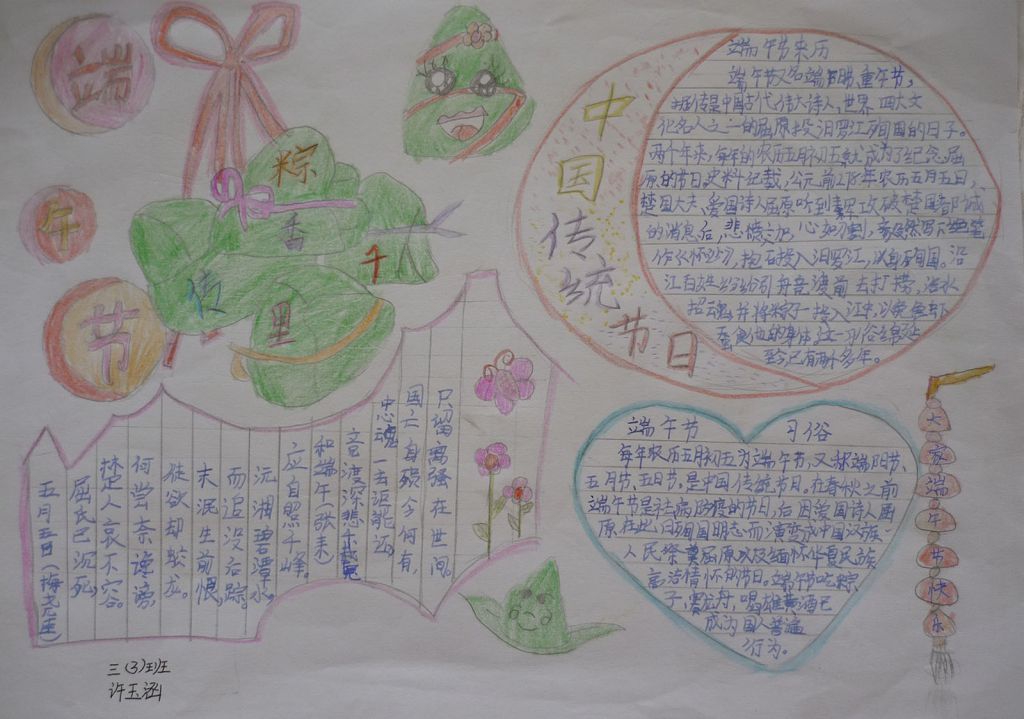 端
午
节
粽
香
千
传
里
中
国
传
统
节
日
端午节来历
端午节又名端阳节、重午节,
据传是中国古代伟大诗人、世界四大文
化名人之一的屈原投汨罗江殉国的日子。
两个年来,每年的农历五月初五就成为了纪念屈
原的节日,史料记载,公元前278年农历五月五日,
楚国大夫、爱国诗人屈原听到秦军攻破楚国都城
的消息后,悲愤
心如刀割,
抱石投入汨罗江,以身殉国。沿
江百姓纷纷引舟竞渡前去打捞,
招魂,并将粽子投入江中,以免鱼虾
蚕食他的身体,这一习俗绵延
至今已有两个多年。
端午节 习俗
每年农历五月初五为端午节,又称端阳节、
五月节、五日节。是中国传统节日。在春秋之前
端午节是祛病防疫的节日,后因爱国诗人屈
原在此日殉国明志而演变成中国汉族
人民祭奠屈原以及缅怀华夏民族
高洁情怀的节日。端午节吃粽
子,赛龙舟,喝雄黄酒已
成为国人普遍
行为。
大
家
端
午
节
快
乐
只留离骚在世间。
国亡身殒今何有,
忠魂一去讵能还。
竞渡深悲千载冤
和端午(张耒)
应自照千峰。
沅湘碧潭水
而追没后踪。
未泯生前恨,
徒欲却蛟龙。
何尝奈谗谤,
楚人哀不容。
屈氏已沉死
五月五日(梅尧臣)
三(3)班
许玉涵